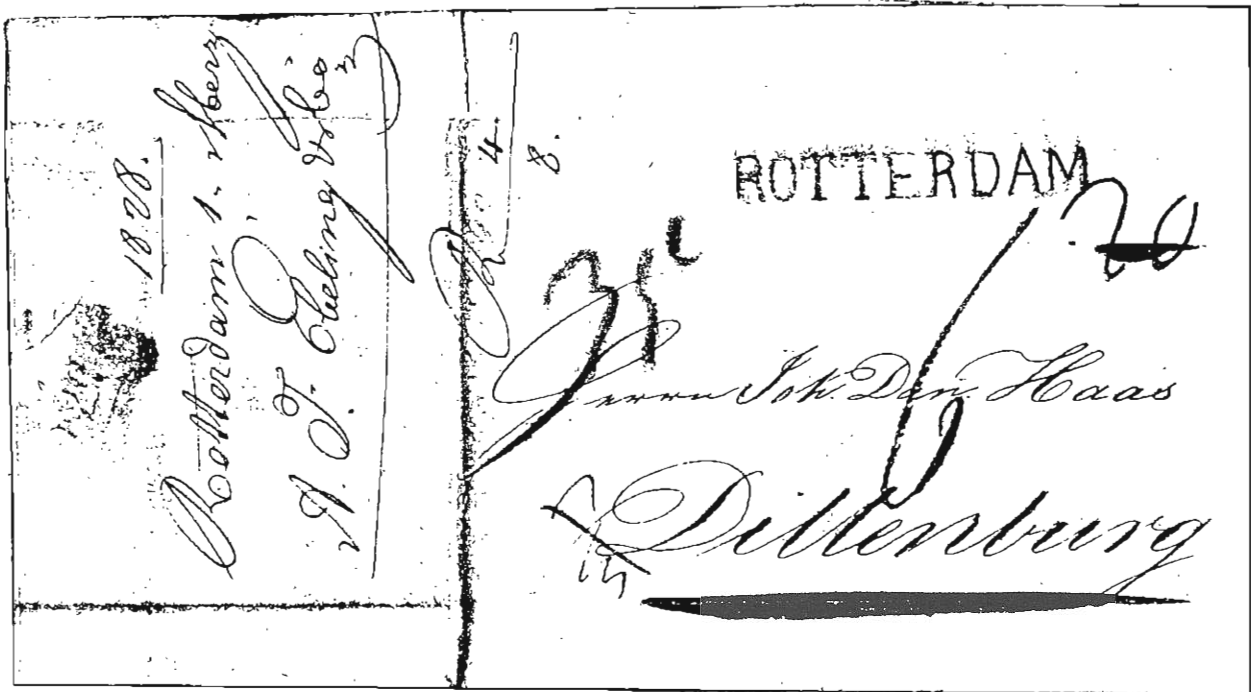 1828.
Rotterdam 1.
A. J. Ebeling
4.
8.
ROTTERDAM
35
20
6
Herrn Joh. Dan. Haas
Dillenburg